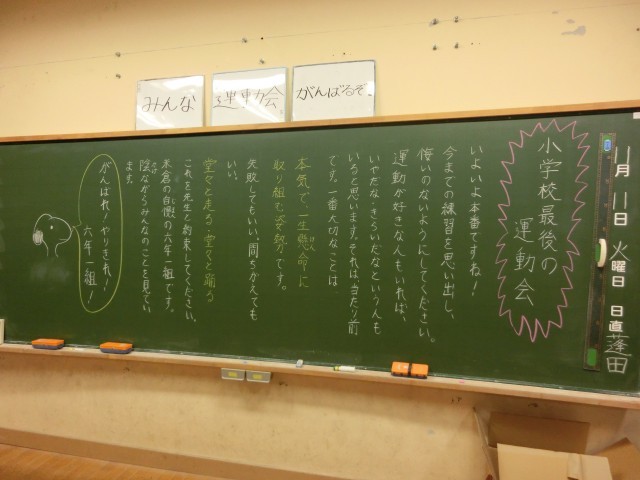 みんな
運動会
がんばるぞ。
11月11日火曜日 日直 蓬田
小学校最後の
運動会
いよいよ本番ですね！
今までの練習を思い出し、
悔いのないようにしてください。
運動が好きな人もいれば、
いやだな・きらいだなという人も
いると思います。それは当たり前
です。一番大切なことは
本気で、一生懸命に
取り組む姿勢です。
失敗してもいい。間ちがえても
いい。
堂々と走る・堂々と踊る
これを先生と約束してください。
米倉の自慢の六年一組です。
陰ながらみんなのことを見てい
ます。
がんばれ！やりきれ！
六年一組！